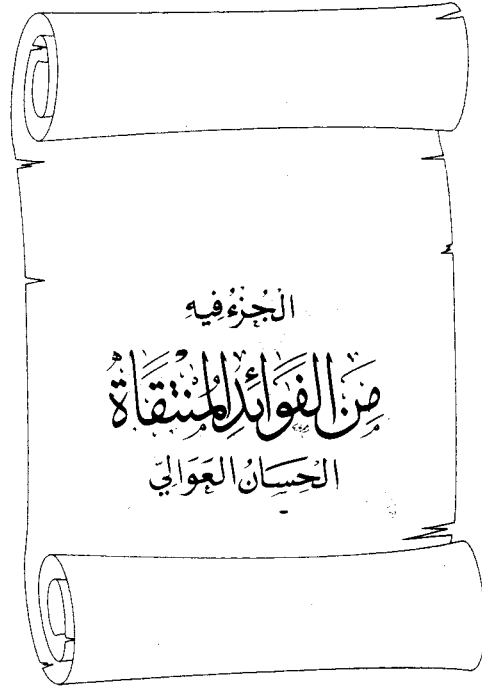 الجُزءُ فِيهِ
مِنَ الفَوَائِدِ المُنْتَقَاةِ
الحِسَانُ العَوَالِيّ